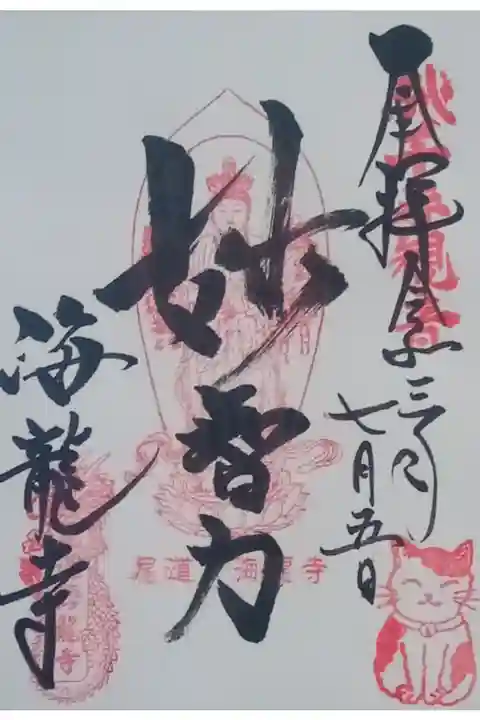 奉拝
令和三年
七月五日
妙智力
尾道 海龍寺
海龍寺